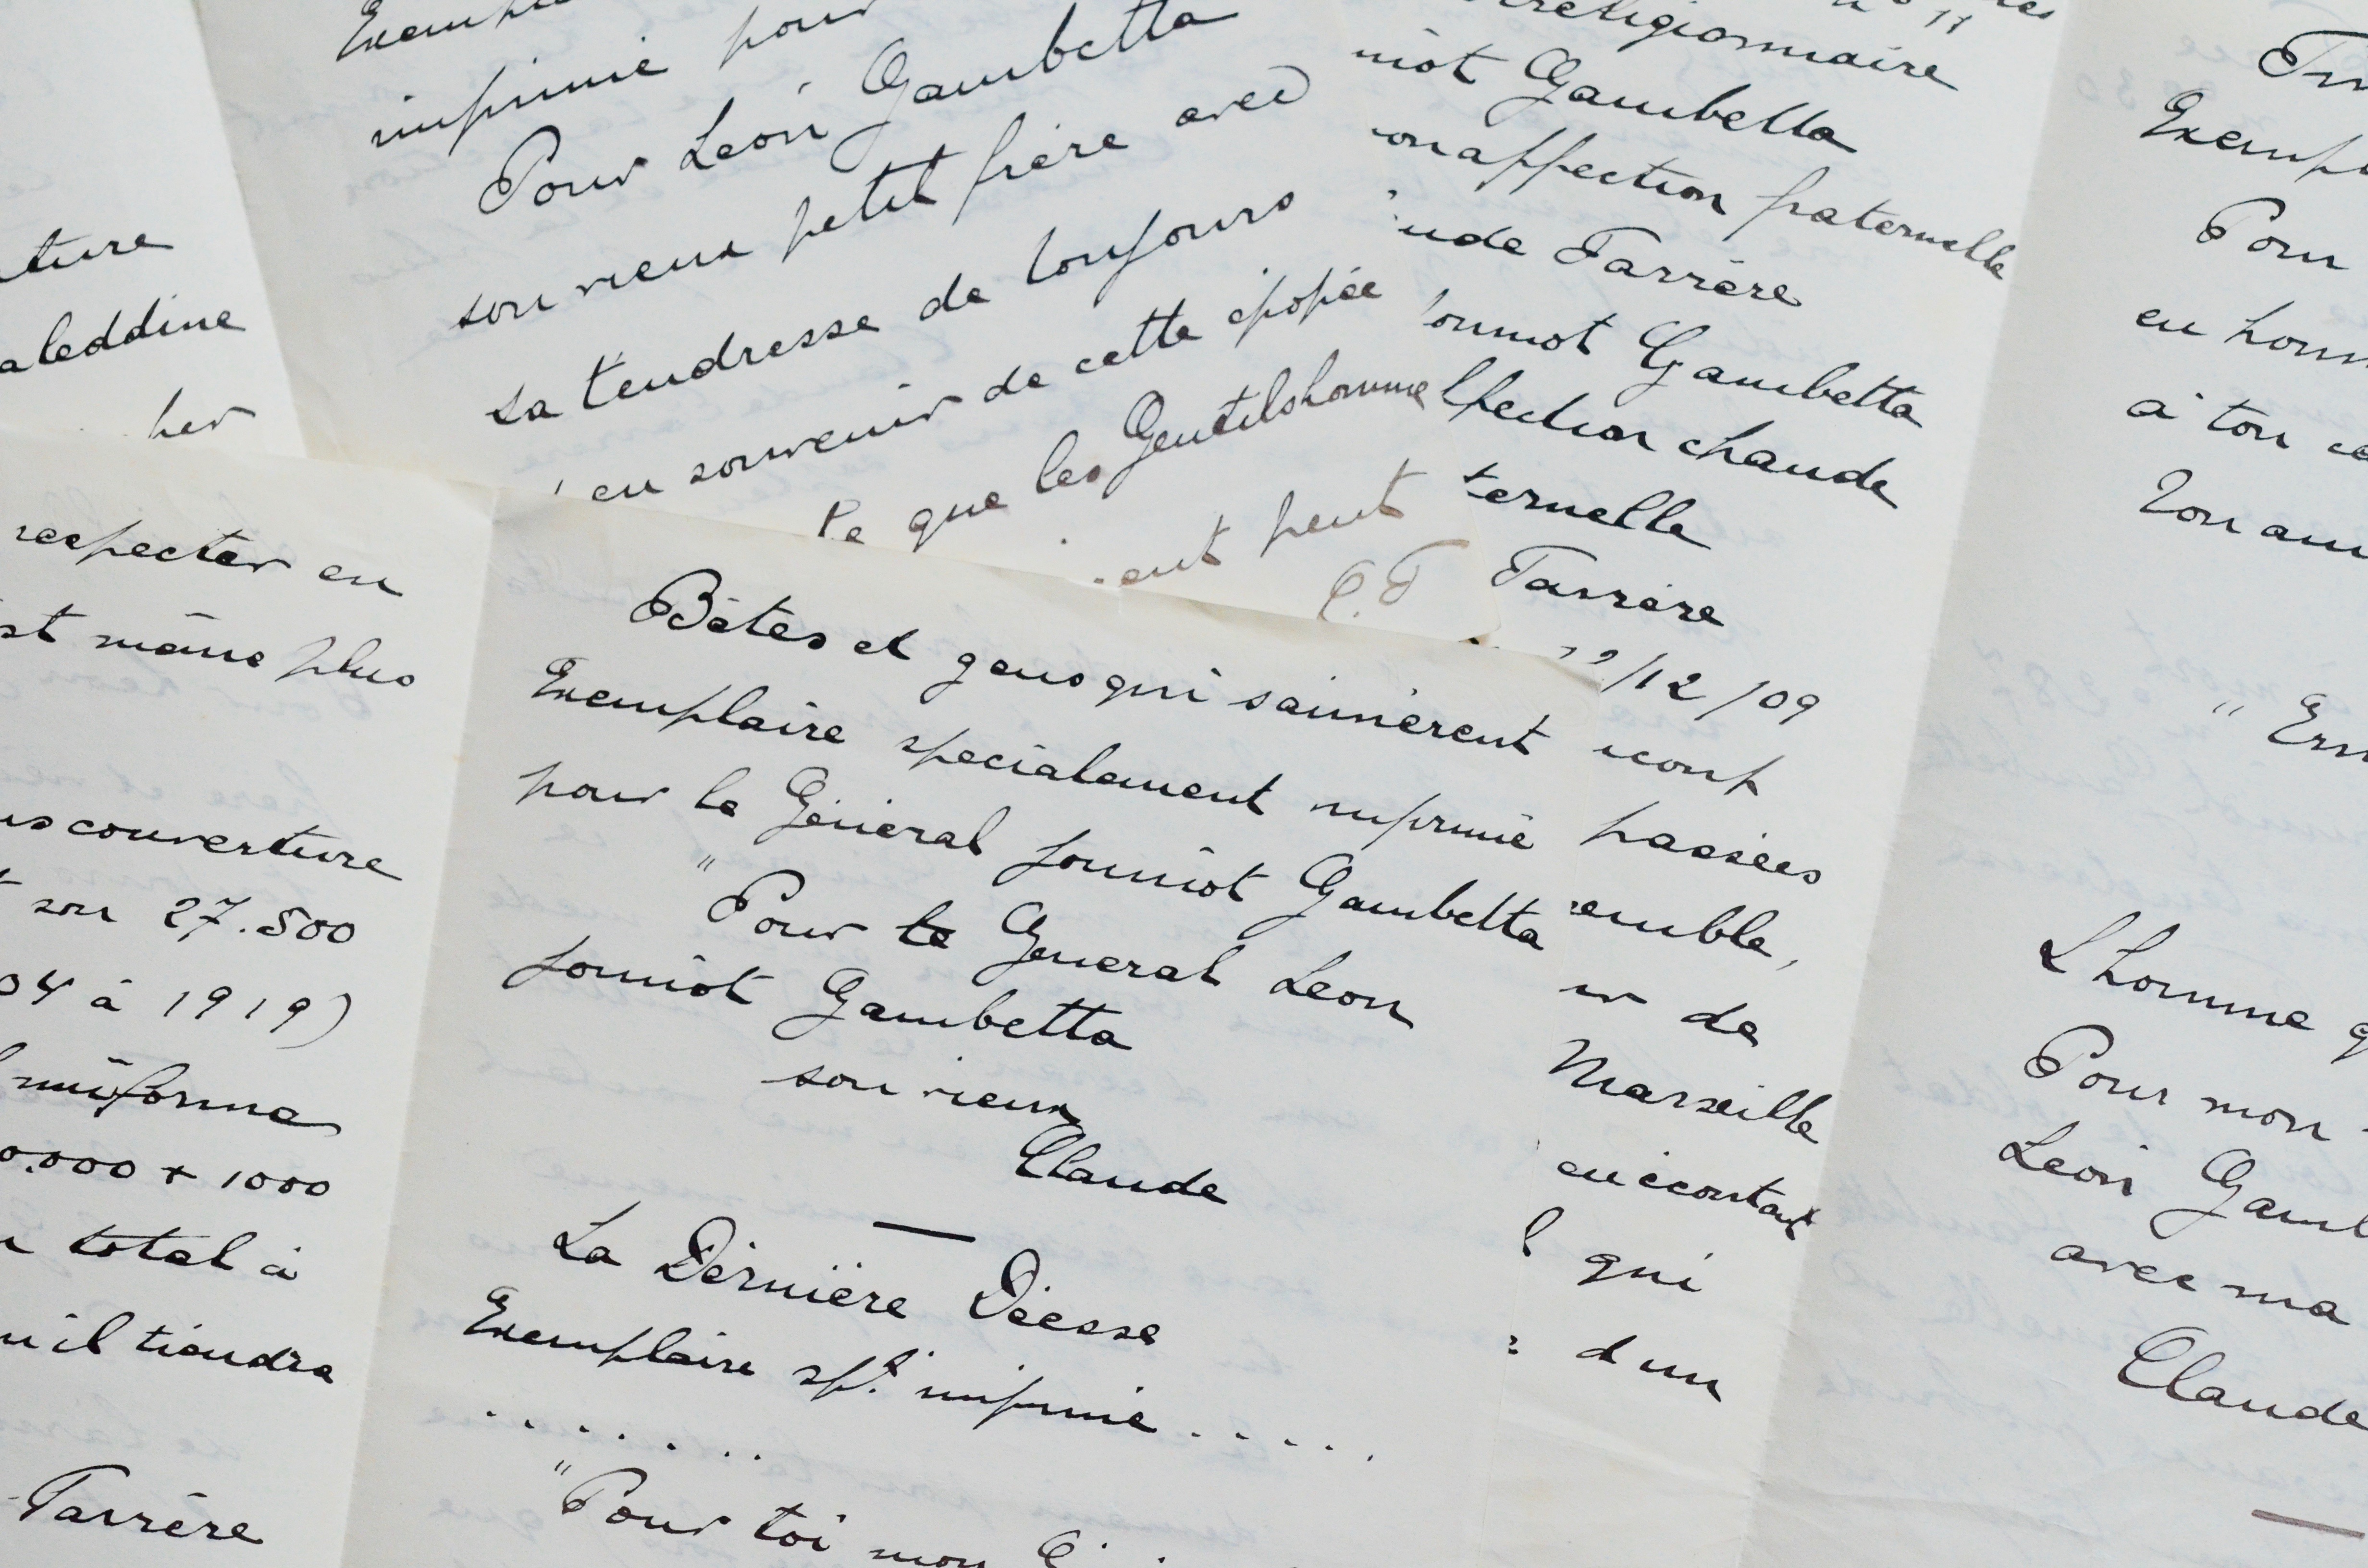 ture
aleddine
her
imprimé pour
Pour Léon Gambetta
son vieux petit frère avec
sa tendresse de toujours
en souvenir de cette épopée
que les Gentilshomme
ent peut
C.F
religionnaire
miot Gambetta
son affection fraternelle
ude Farrère
Joumiot Gambetta
ffection chaude
ternelle
Farrère
/12/09
coup
passées
emble,
de
Marseille
en écoutant
qui
d'un
respecter en
st même plus
couverture
son 27.500
04 à 1919)
uniforme
0.000 + 1000
total à
u'il tiendra
Farrère
Bêtes et gens qui s'aimèrent
Exemplaire spécialement imprimé
pour le Général Joumiot Gambetta
"Pour le Général Léon
Joumiot Gambetta
son vieux
Claude
La Dernière Déesse
Exemplaire spt imprimé . . . . .
. . . . . . .
"Pour toi mon
Exemp
Pour
en hom
à ton
Ton ami
L'homme q
Pour mon
Léon Gamb
avec ma
Claude